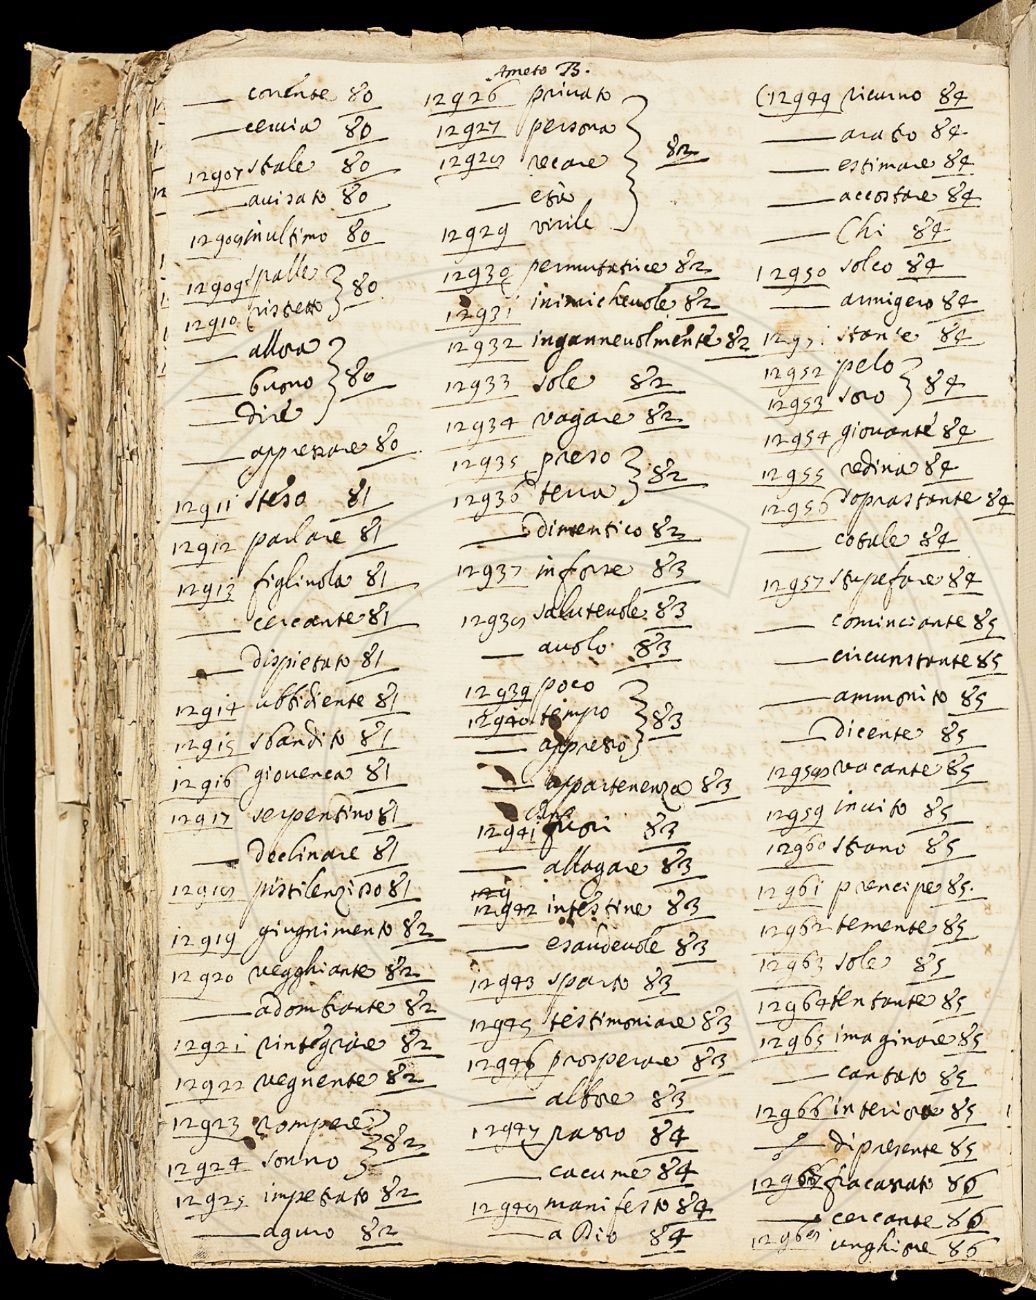 Ameto B.
—— corrente 80
—— cervia 80
12907 stale 80
—— auisato 80
12908 inultimo 80
12909 spalle
12910 ristretto } 80
—— allora
—— buono } 80
—— dire
—— appressare 80
12911 steso 81
12912 parlare 81
12913 figliuola 81
—— cercante 81
—— dispietato 81
12914 ubbidiente 81
12915 sbandito 81
12916 giouenca 81
12917 serpentino 81
—— declinare 81
12918 pistilenzioso 81
12919 giugnimento 82
12920 vegghiante 82
—— adombrante 82
12921 rintegrare 82
12922 vegnente 82
12923 rompere
12924 sonno } 82
12925 impetrato 82
—— aguro 82
12926 priuato
12927 persona
12928 recare } 82
—— età
12929 virile
12930 permutatrice 82
12931 inimicheuole 82
12932 inganneuolmente 82
12933 sole 82
12934 vagare 82
12935 preso
12936 terra } 82
—— dimentico 82
12937 inforse 83
12938 saluteuole 83
—— auolo 83
12939 poco
12940 tempo } 83
—— appresso
—— appartenenza 83
12941 fuori 83
—— allagare 83
12942 intestine 83
—— esaudeuole 83
12943 sparto 83
12945 testimoniare 83
12946 prosperare 83
—— altore 83
12947 passo 84
—— cacume 84
12948 manifesto 84
—— a Dio 84
12949 ricurno 84
—— arato 84
—— estimare 84
—— accostare 84
—— Chi 84
12950 soleo 84
—— armigero 84
stante 84
12952 pelo
12953 soro } 84
12954 giouante 84
12955 redina 84
12956 soprastante 84
—— cotale 84
12957 stupefare 84
—— cominciante 85
—— circunstante 85
—— ammonito 85
—— dicente 85
12958 vacante 85
12959 inuito 85
12960 strano 85
12961 prencipe 85.
12962 temente 85
12963 sole 85
12964 tentante 85
12965 imaginare 85
—— cantato 85
12966 interiore 85
—— dipresente 85
fiacassato 86
—— cercante 86
unghione 86